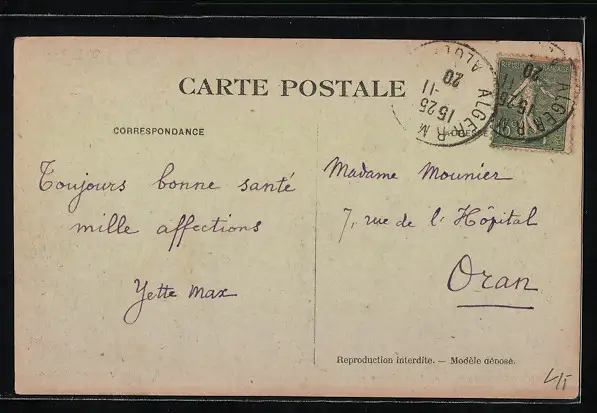 CARTE POSTALE
CORRESPONDANCE
ADRESSE
Toujours bonne santé
mille affections
Yette Max
Madame Mounier
7, rue de l'Hôpital
Oran
ALGER R M
15 25
-11
20
ALGER R M
15 25
11
20
Reproduction interdite. — Modèle déposé.